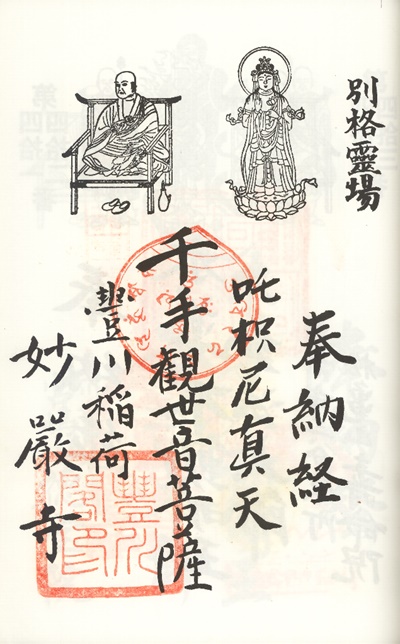 別格靈場
奉納経
吒枳尼真天
千手觀世音菩薩
豊川稲荷
妙嚴寺